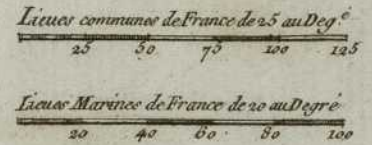 Lieues communes de France de 25 au Deg.é
25 50 75 100 125
Lieues Marines de France de 20 au Degré
20 40 60 80 100